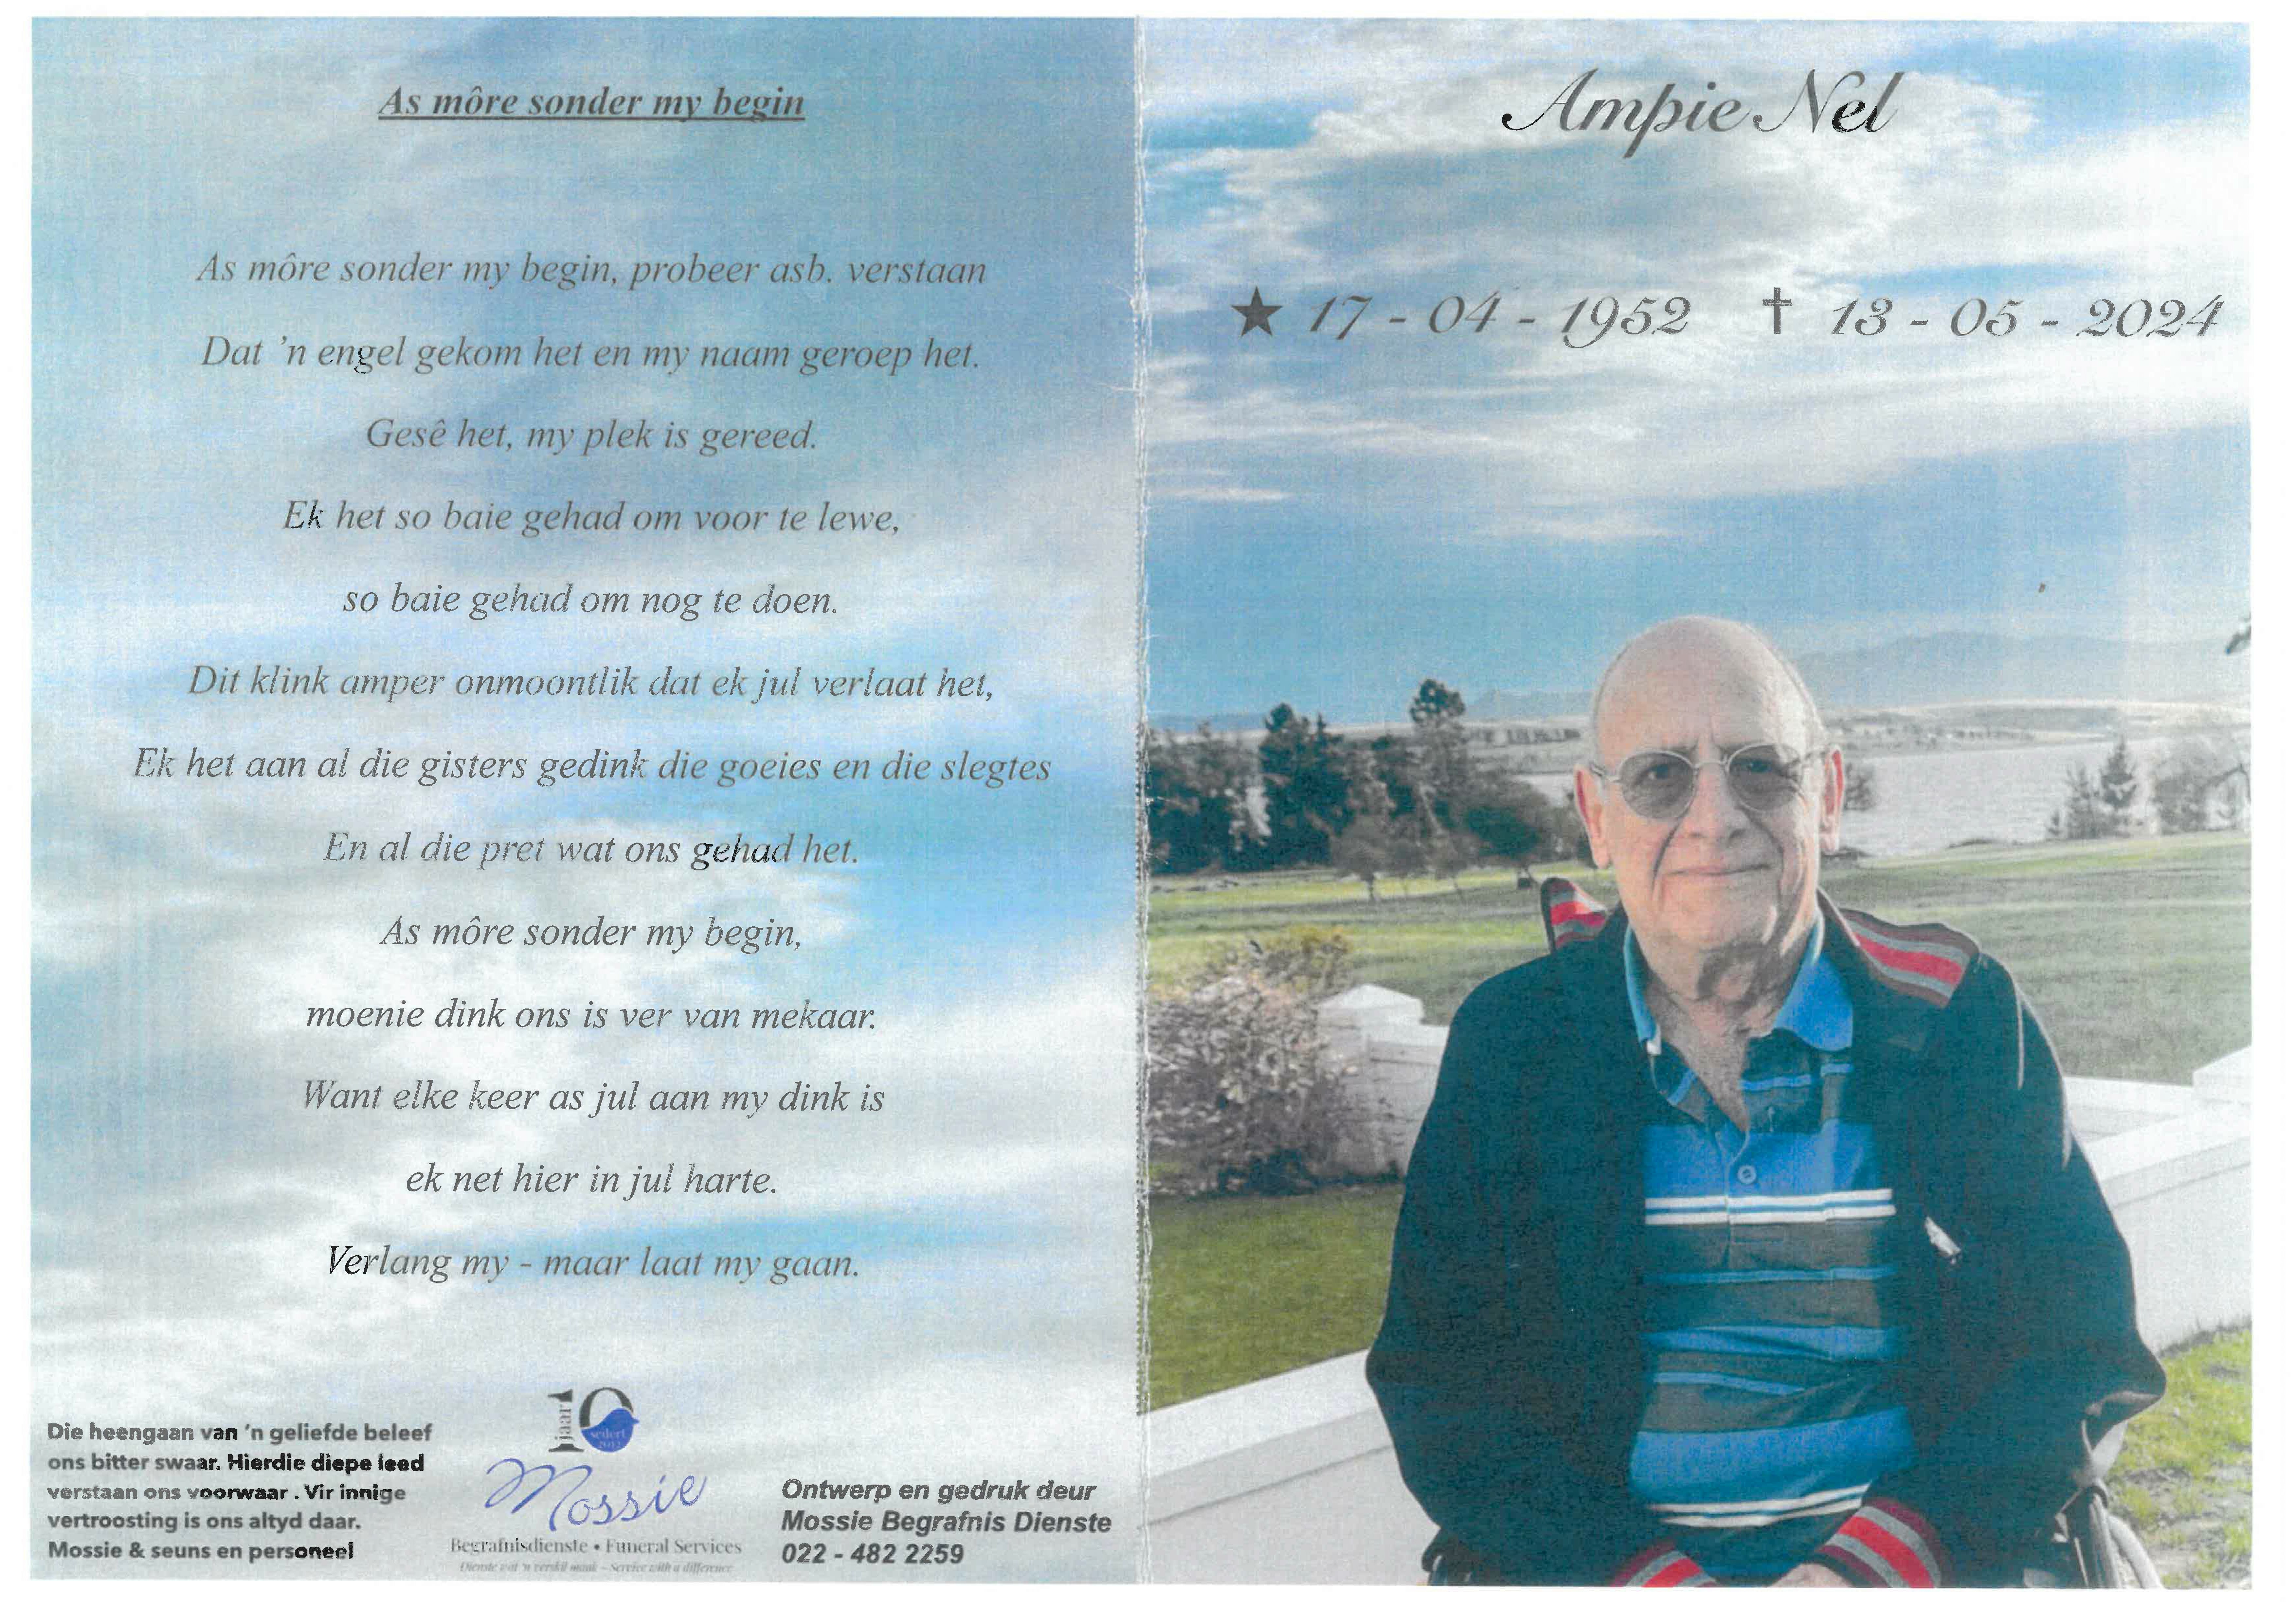 As môre sonder my begin
As môre sonder my begin, probeer asb. verstaan
Dat 'n engel gekom het en my naam geroep het.
Gesê het, my plek is gereed.
Ek het so baie gehad om voor te lewe,
so baie gehad om nog te doen.
Dit klink amper onmoontlik dat ek jul verlaat het,
Ek het aan al die gisters gedink die goeies en die slegtes
En al die pret wat ons gehad het.
As môre sonder my begin,
moenie dink ons is ver van mekaar.
Want elke keer as jul aan my dink is
ek net hier in jul harte.
Verlang my - maar laat my gaan.
Die heengaan van 'n geliefde beleef
ons bitter swaar. Hierdie diepe leed
verstaan ons voorwaar . Vir innige
vertroosting is ons altyd daar.
Mossie & seuns en personeel
10
jaar
sedert
Mossie
Begrafnisdienste • Funeral Services
Dienste wat 'n verskil maak – Service with a difference
Ontwerp en gedruk deur
Mossie Begrafnis Dienste
022 - 482 2259
Ampie Nel
★ 17 - 04 - 1952 † 13 - 05 - 2024